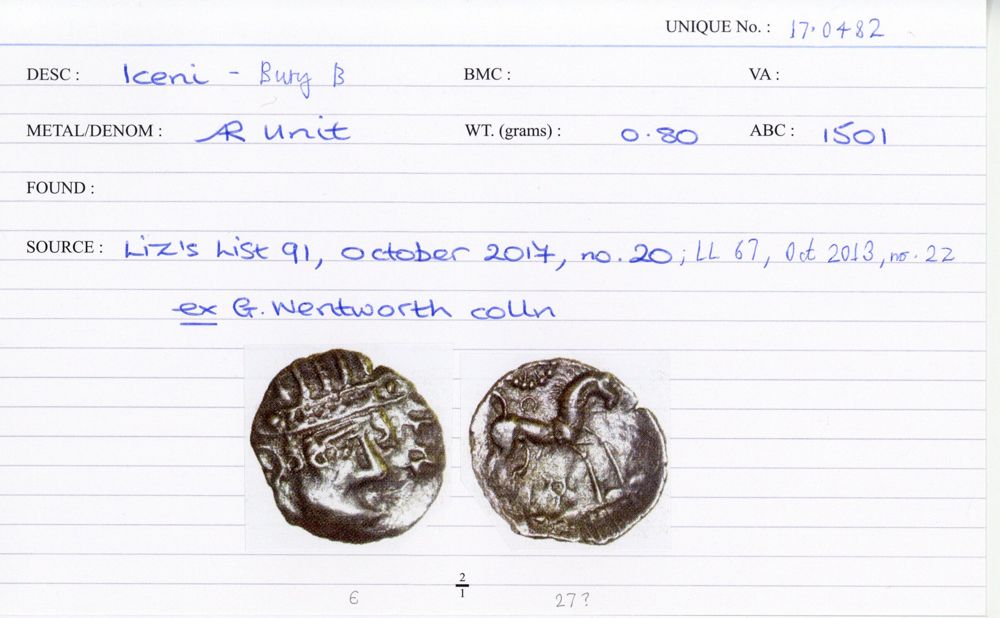 UNIQUE No. : 17.0482
DESC : Iceni - Bury B BMC : VA :
METAL/DENOM : AR unit WT. (grams) : 0.80 ABC : 1501
FOUND :
SOURCE : Liz's List 91, October 2017, no. 20; LL 67, Oct 2013, no. 22
ex G. Wentworth colln
2
1
€ 27?